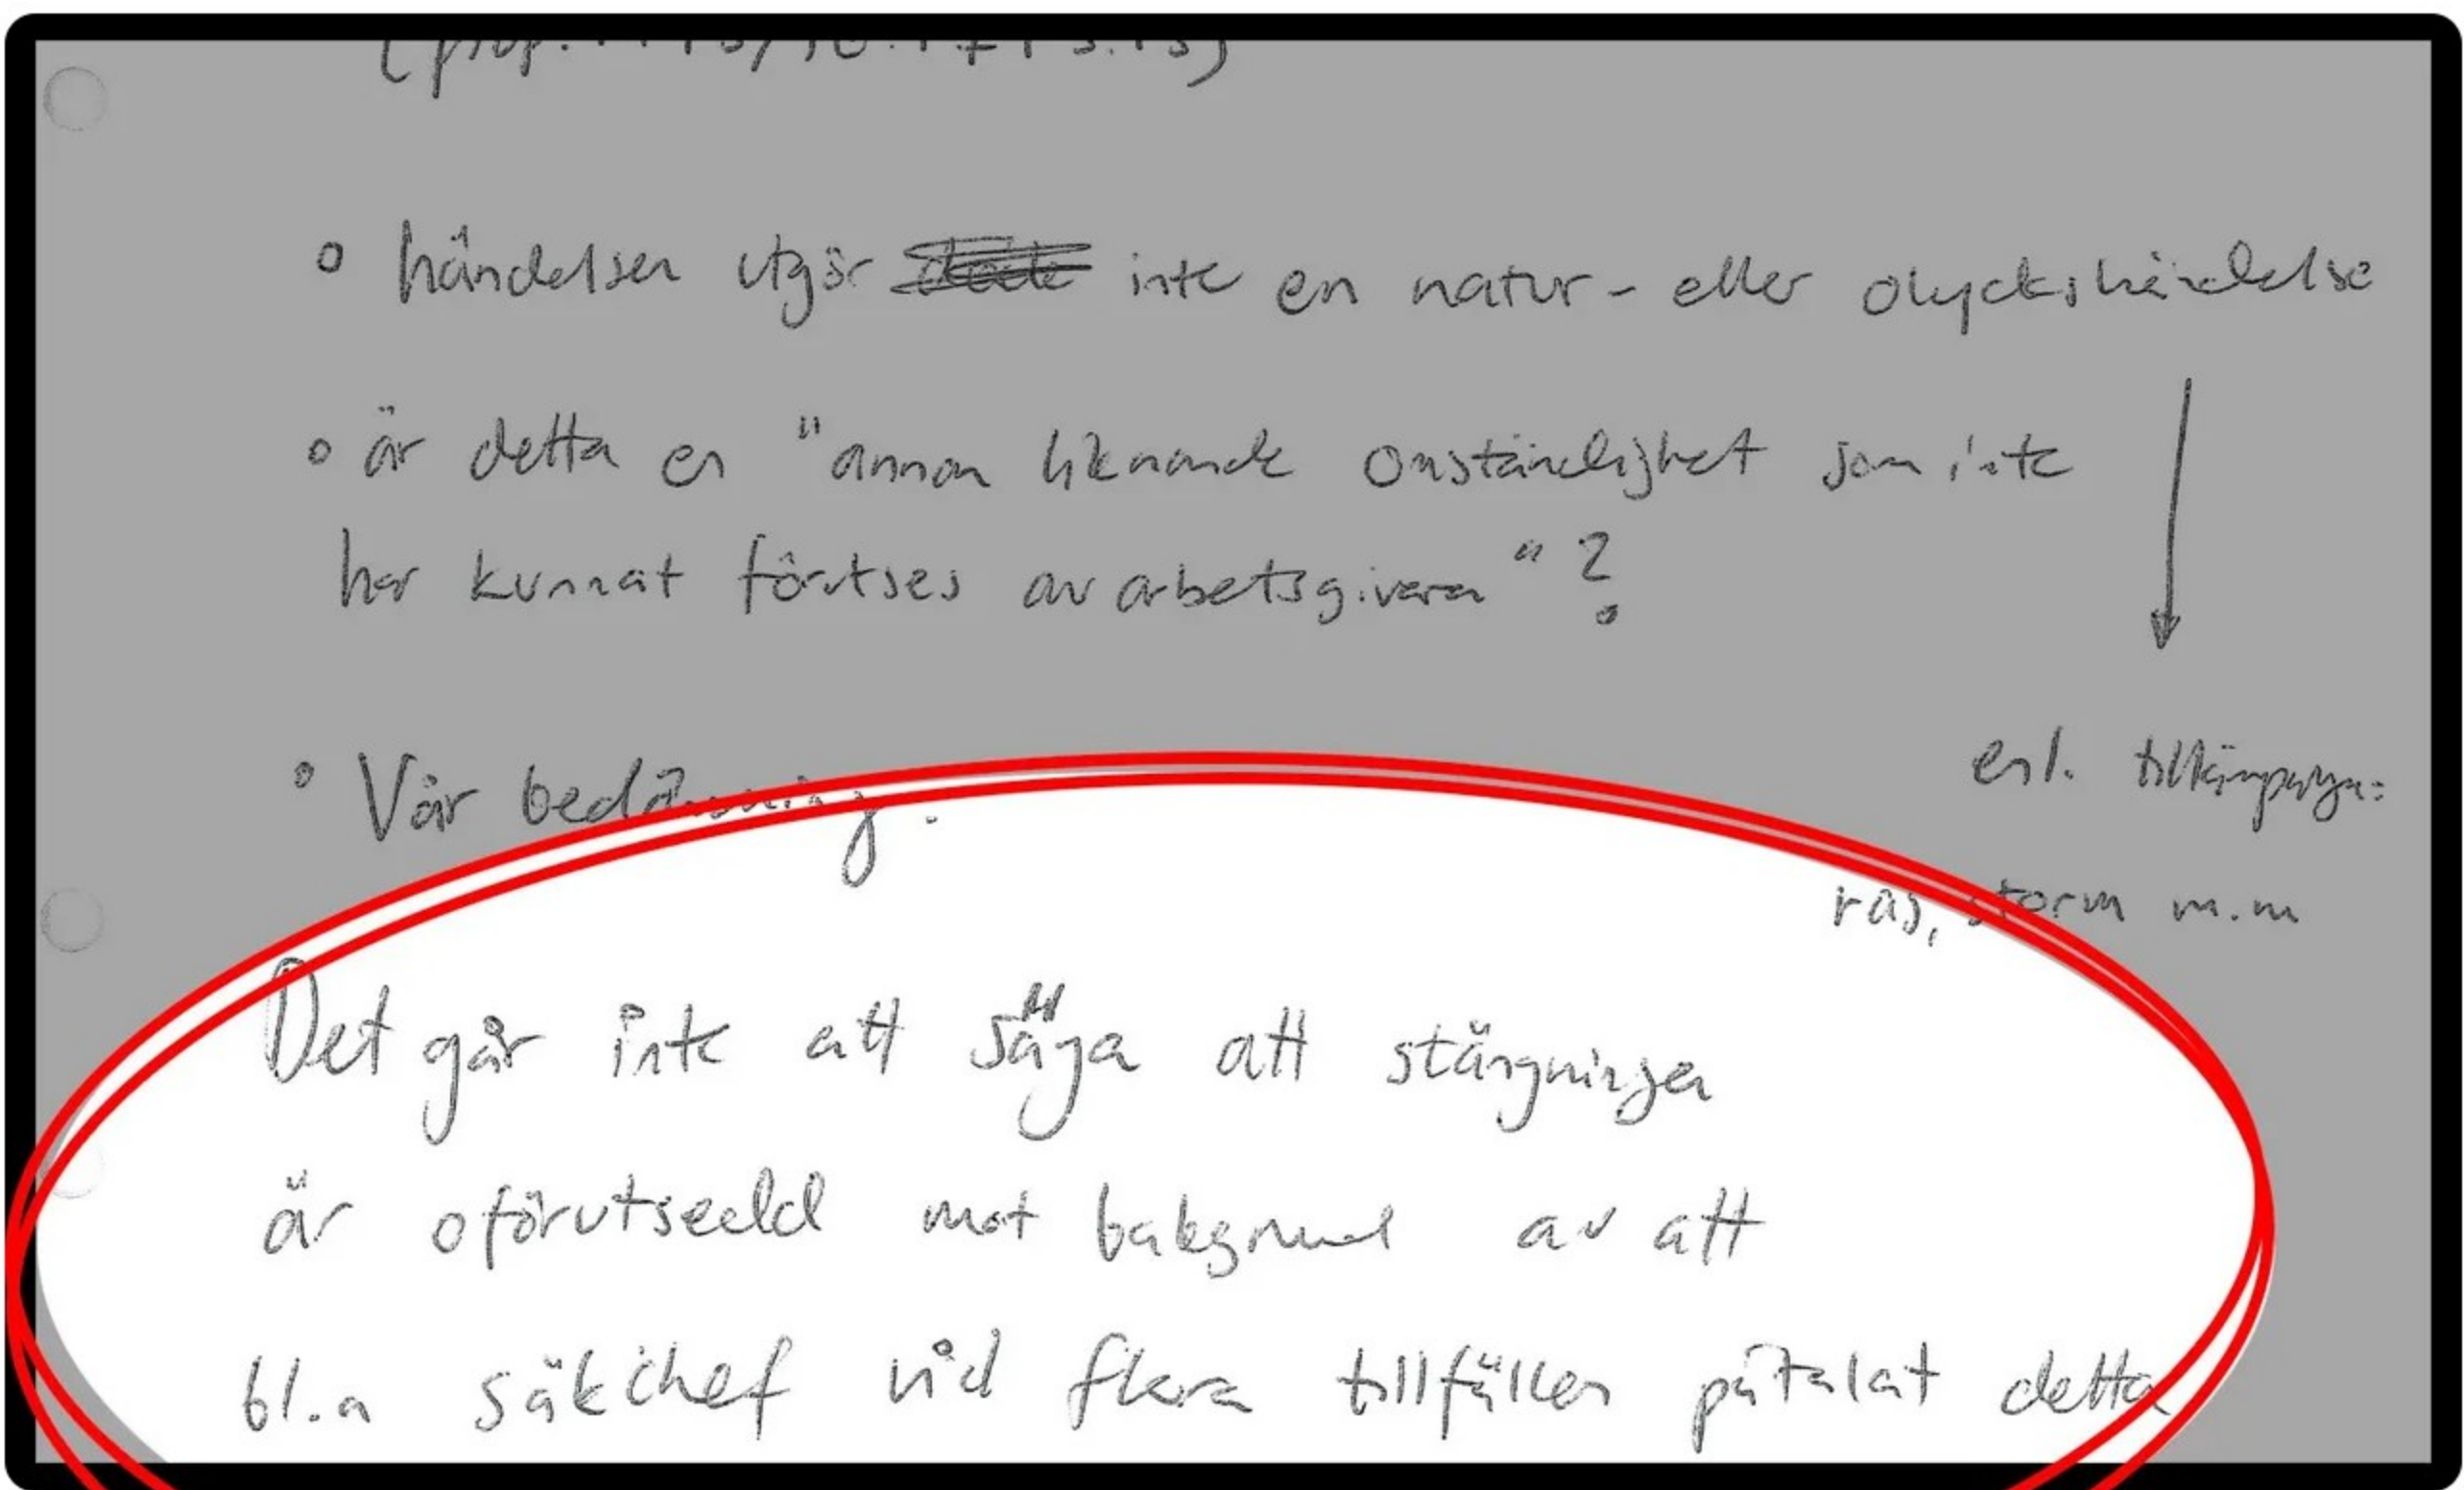 händelsen utgör inte en natur- eller olyckshändelse
är detta en "annan liknande omständighet som inte
har kunnat förutses av arbetsgivaren"?
Vår bedömning:
enl. tillämpningen:
ras, storm m.m
Det går inte att säga att stängningen
är oförutsedd mot bakgrund av att
bl.a säkchef vid flera tillfällen påtalat detta